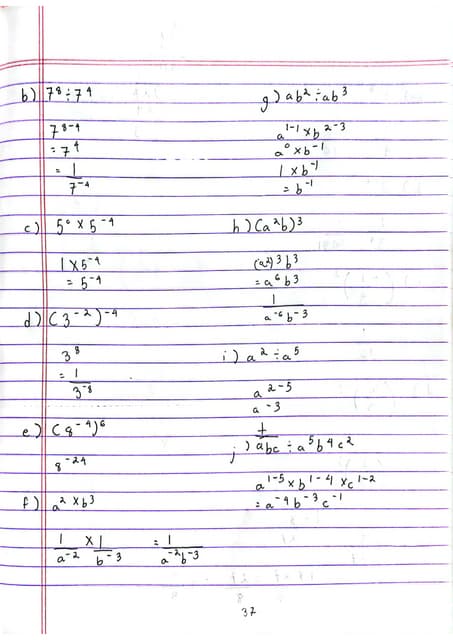 b) 7⁸ ÷ 7⁴
7⁸⁻⁴
= 7⁴
= 1/7⁻⁴
c) 5⁰ × 5⁻⁴
1 × 5⁻⁴
= 5⁻⁴
d) (3⁻²)⁻⁴
3⁸
= 1/3⁻⁸
e) (8⁻⁴)⁶
8⁻²⁴
f) a² × b³
1/a⁻² × 1/b⁻³ = 1/a⁻²b⁻³
g) ab² ÷ ab³
a¹⁻¹ × b²⁻³
a⁰ × b⁻¹
1 × b⁻¹
= b⁻¹
h) (a²b)³
(a²)³b³
= a⁶b³
1/a⁻⁶b⁻³
i) a² ÷ a⁵
a²⁻⁵
a⁻³
j) abc ÷ a⁵b⁴c²
a¹⁻⁵ × b¹⁻⁴ × c¹⁻²
= a⁻⁴b⁻³c⁻¹
37